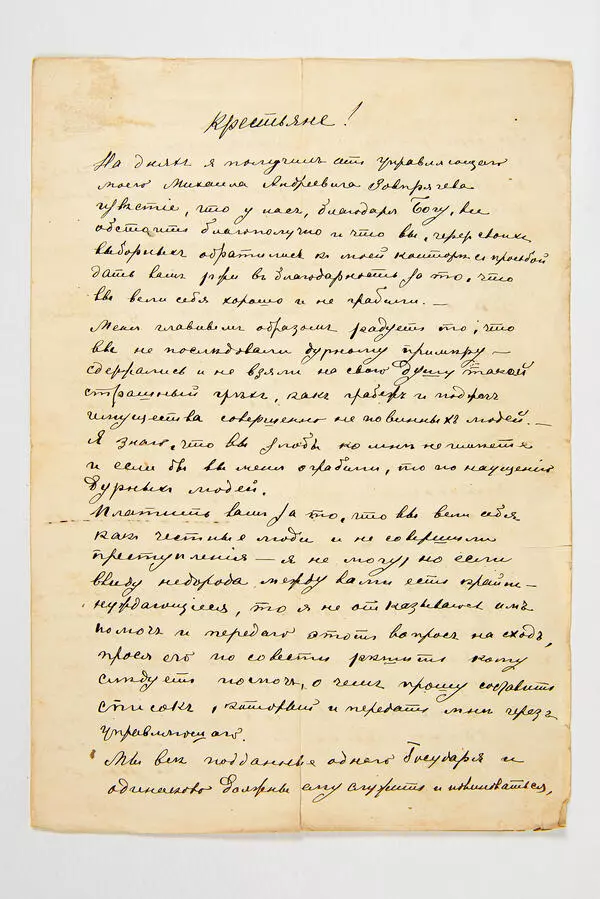 Крестьяне!
На дняхъ я получилъ отъ управляющаго
моего Михаила Андреевича
извѣстіе, что у насъ, благодаря Богу, все
обстоитъ благополучно и что вы, черезъ своихъ
выборныхъ обратились къ моей конторѣ съ просьбой
дать вамъ ржи въ благодарность за то, что
вы вели себя хорошо и не грабили. —
Меня главнымъ образомъ радуетъ то, что
вы не послѣдовали дурному примѣру —
сдержались и не взяли на свою душу такой
страшный грѣхъ, какъ грабежъ и поджогъ
имущества совершенно неповинныхъ людей. —
Я знаю, что вы злобы ко мнѣ не имѣете
и если бы вы меня ограбили, то по наущенію
дурныхъ людей.
Платить вамъ за то, что вы вели себя
какъ честные люди и не совершили
преступленія — я не могу, но если
ввиду недорода между вами есть крайне
нуждающіеся, то я не отказываюсь имъ
помочь и передаю этотъ вопросъ на сходъ,
прося его по совѣсти рѣшить кому
слѣдуетъ помочь, о чемъ прошу составить
списокъ, который и передать мнѣ черезъ
управляющаго.
Мы всѣ подданные одного Государя и
одинаково должны ему служить и повиноваться,